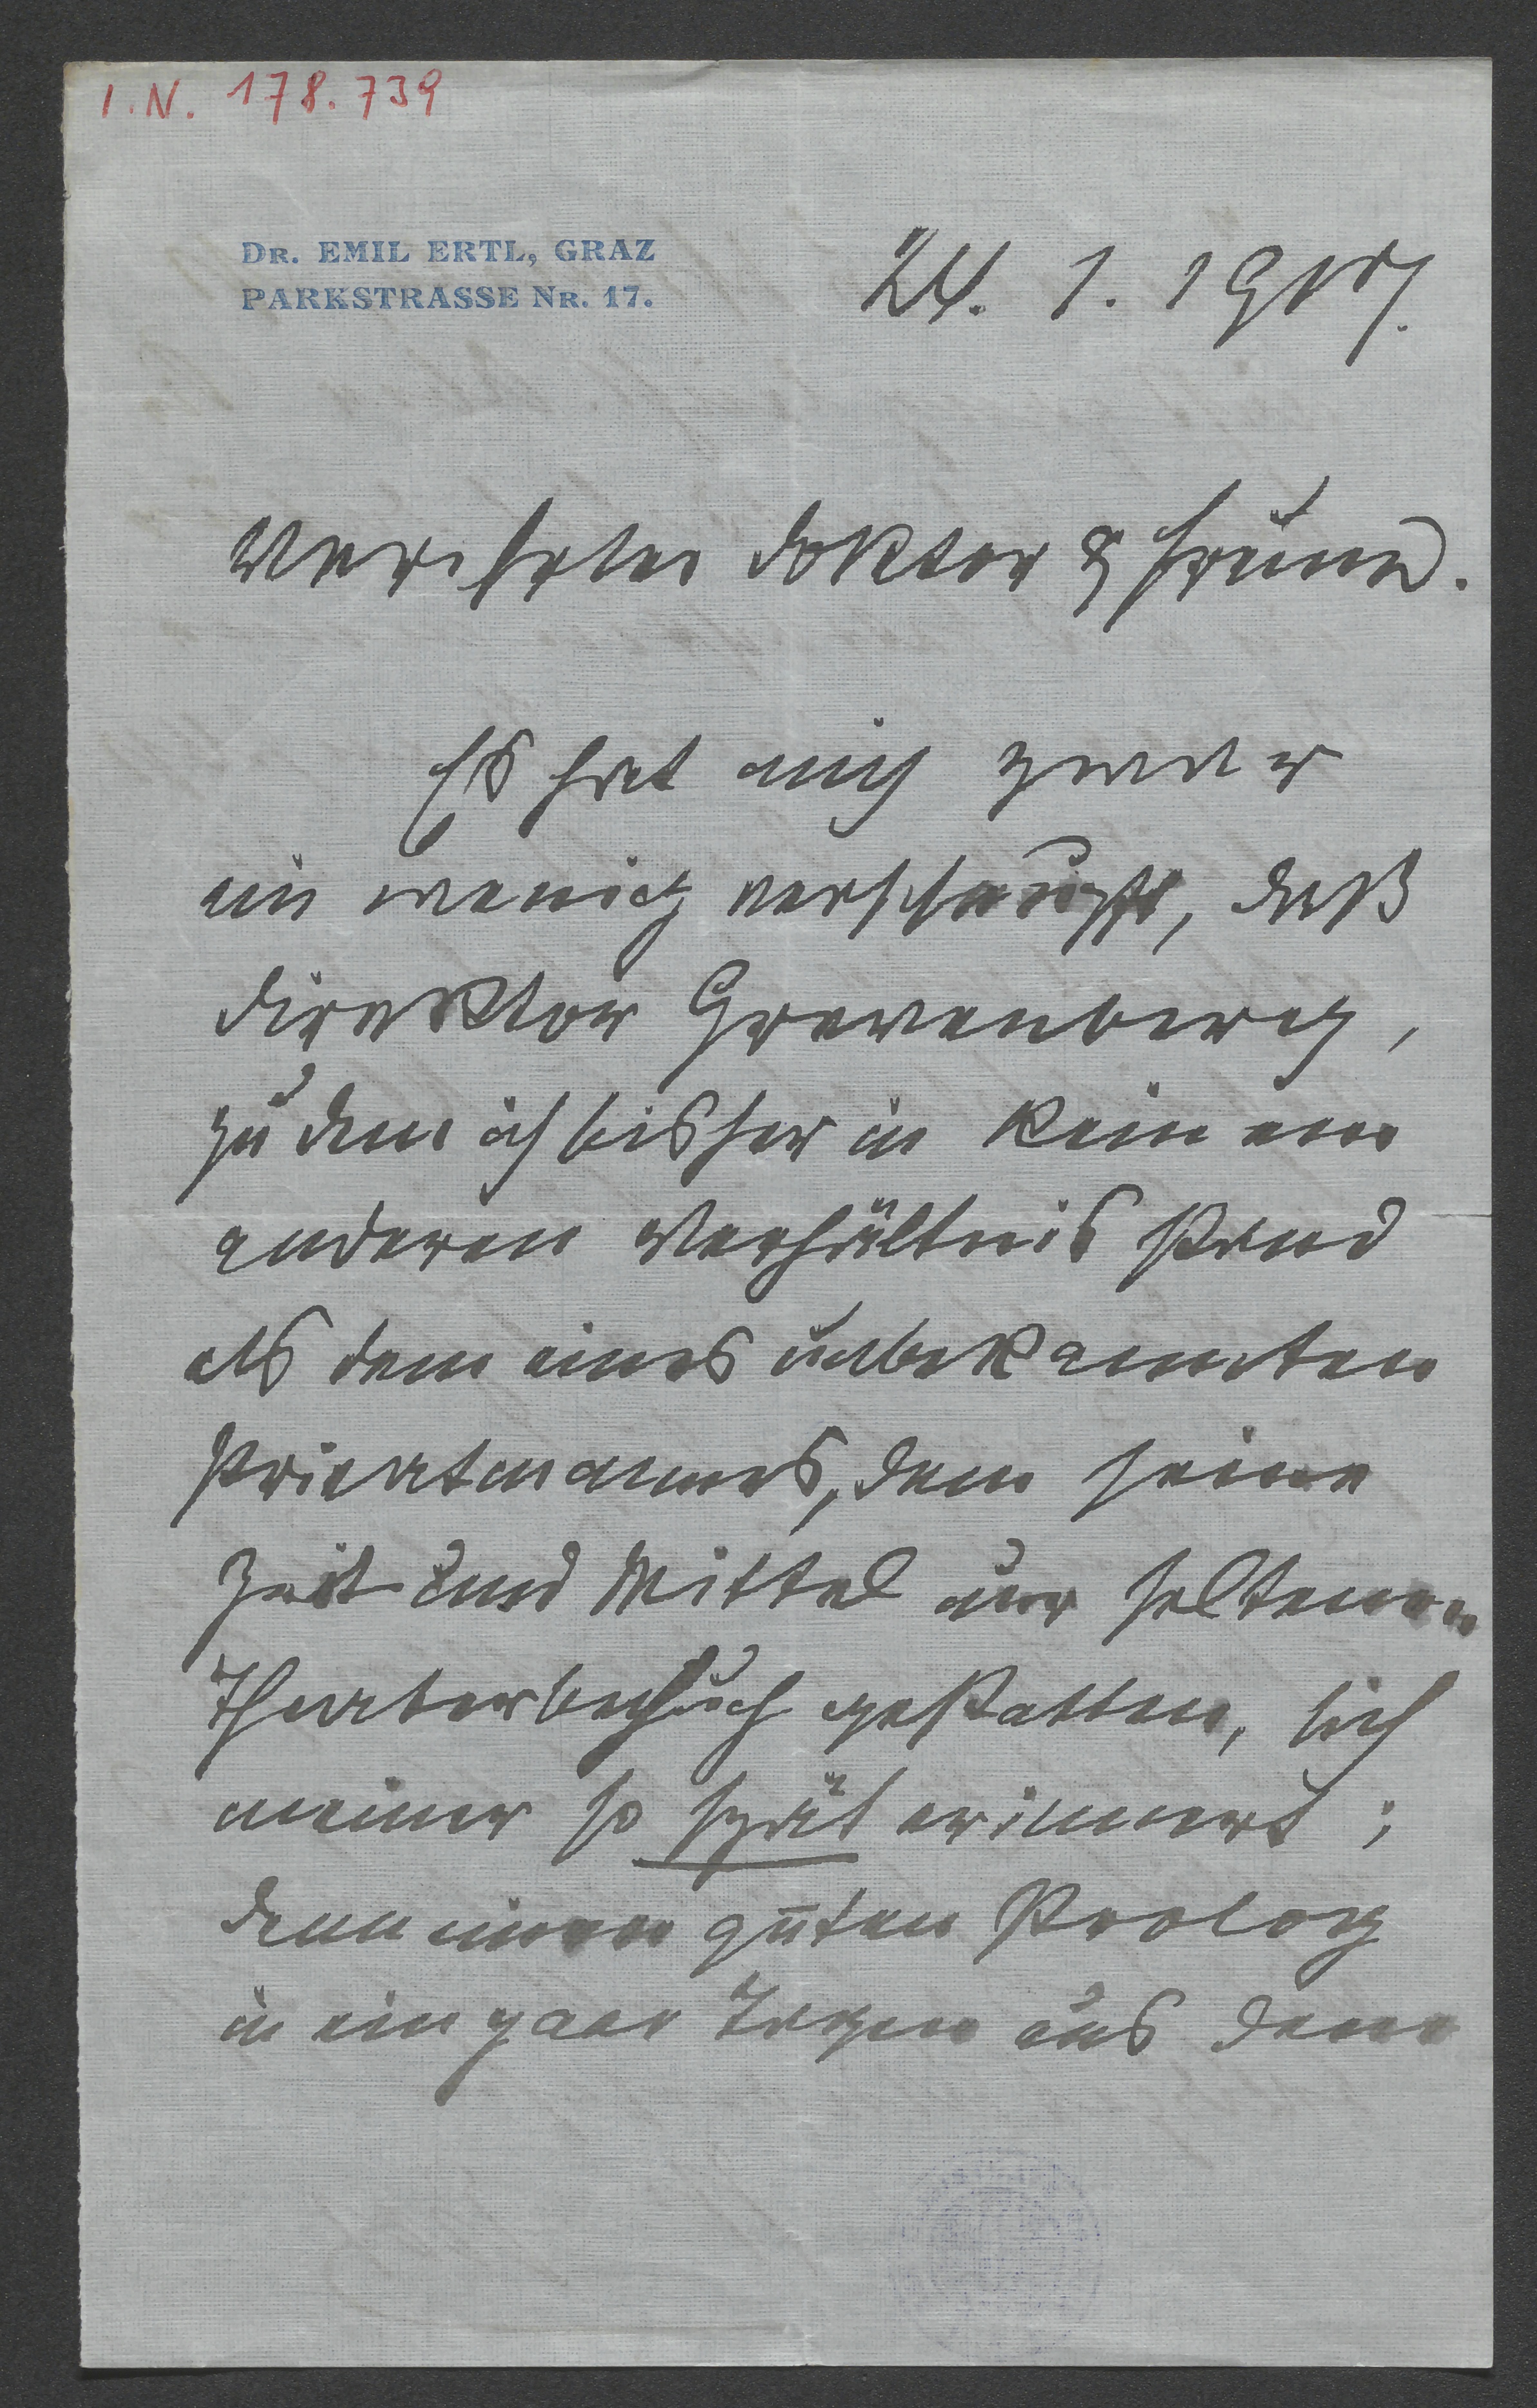 I.N. 178.739
DR. EMIL ERTL, GRAZ
PARKSTRASSE NR. 17.
24. 1. 1917.
Verehrter Doktor & Freund.
Es hat mich zwar
ein wenig verschnupft, daß
Direktor Grevenberg,
zu dem ich bisher in keinem
anderen Verhältnis stand
als dem eines unbekannten
Privatmannes, dem seine
Zeit und Mittel nur seltenen
Theaterbesuch gestatten, sich
meiner so spät erinnert;
denn einen guten Prolog
in ein paar Tagen aus dem